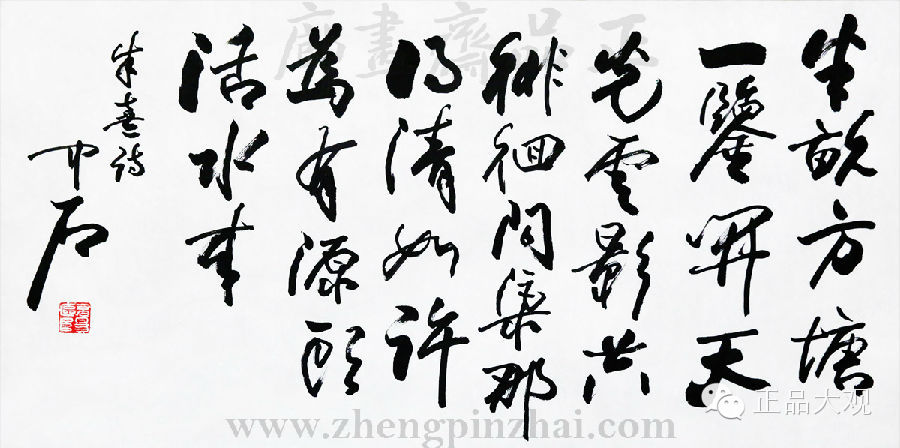 半畝方塘
一鑒開天
光雲影共
徘徊問渠那
得清如許
為有源頭
活水來
朱熹詩
中石
正品齋畫廊
www.zhengpinzhai.com
正品大观